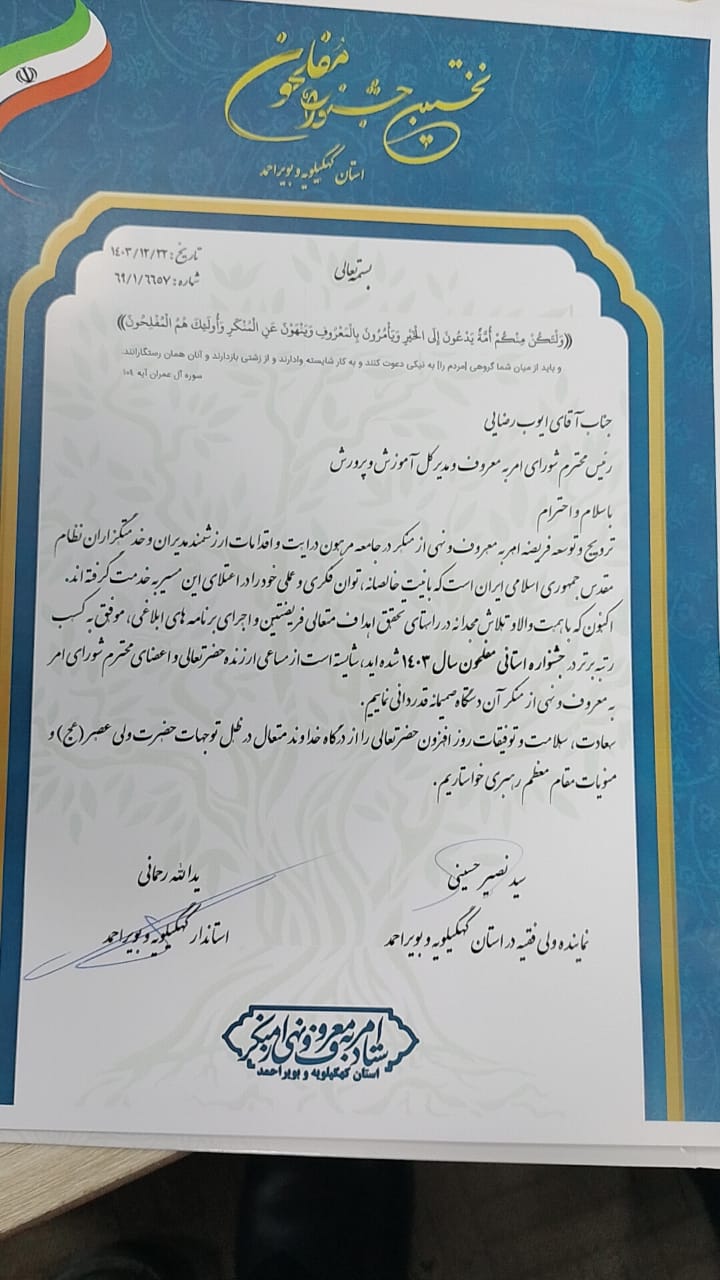 نخستین جشنواره مُفلِحون
استان کهگیلویه و بویراحمد
بسمه تعالی
تاریخ: ۱۴۰۳/۱۲/۲۲
شماره: ۶۹/۱/۶۶۵۷
((وَلْتَكُنْ مِنْكُمْ أُمَّةٌ يَدْعُونَ إِلَى الْخَيْرِ وَيَأْمُرُونَ بِالْمَعْرُوفِ وَيَنْهَوْنَ عَنِ الْمُنْكَرِ وَأُولَئِكَ هُمُ الْمُفْلِحُونَ))
و باید از میان شما گروهی [مردم را] به نیکی دعوت کنند و به کار شایسته وادارند و از زشتی بازدارند و آنان همان رستگارانند.
سوره آل عمران آیه ۱۰۴
جناب آقای ایوب رضایی
رئیس محترم شورای امر به معروف و مدیر کل آموزش و پرورش
با سلام و احترام
ترویج و توسعه فریضه امر به معروف و نهی از منکر در جامعه مرهون درایت و اقدامات ارزشمند مدیران و خدمتگزاران نظام
مقدس جمهوری اسلامی ایران است که با نیت خالصانه، توان فکری و عملی خود را در اعتلای این مسیر به خدمت گرفته اند.
اکنون که با همت والا و تلاش مجدانه در راستای تحقق اهداف متعالی فریضتین و اجرای برنامه های ابلاغی، موفق به کسب
رتبه برتر در جشنواره استانی مفلحون سال ۱۴۰۳ شده اید، شایسته است از مساعی ارزنده حضرتعالی و اعضای محترم شورای امر
به معروف و نهی از منکر آن دستگاه صمیمانه قدردانی نماییم.
سعادت، سلامت و توفیقات روز افزون حضرتعالی را از درگاه خداوند متعال در ظل توجهات حضرت ولی عصر (عج) و
منویات مقام معظم رهبری خواستاریم.
سید نصیر حسینی
نماینده ولی فقیه در استان کهگیلویه و بویراحمد
یدالله رحمانی
استاندار کهگیلویه و بویراحمد
ستاد امر به معروف و نهی از منکر
استان کهگیلویه و بویراحمد